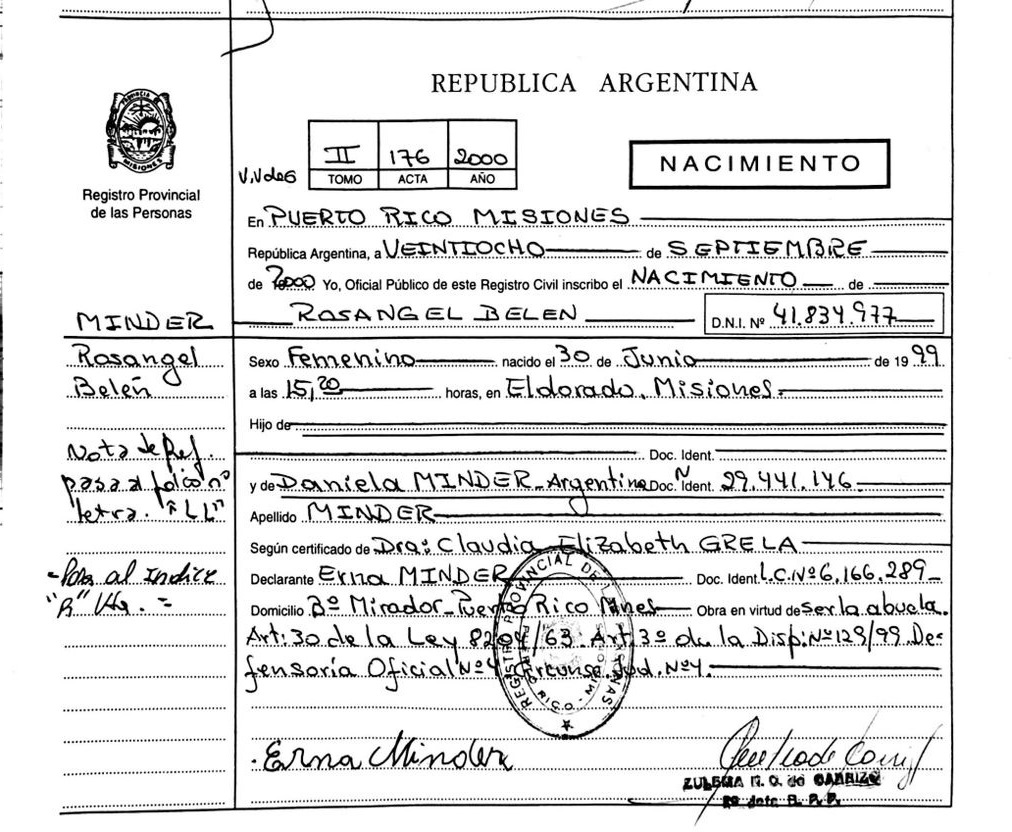 REPUBLICA ARGENTINA
PROVINCIA DE MISIONES
Registro Provincial
de las Personas
V.V de G
II 176 2000
TOMO ACTA AÑO
NACIMIENTO
En PUERTO RICO MISIONES
República Argentina, a VEINTIOCHO de SEPTIEMBRE
de 2000 Yo, Oficial Público de este Registro Civil inscribo el NACIMIENTO de
ROSANGEL BELEN D.N.I. Nº 41.834.977
MINDER
Rosangel
Belén
Nota de Ref.
pasa al folio nº
letra. "LL"
Sexo Femenino nacido el 30 de Junio de 1999
a las 15,20 horas, en Eldorado, Misiones.
Hijo de
Doc. Ident.
y de Daniela MINDER - Argentina Doc. Ident. Nº 29.441.146.
Apellido MINDER
Según certificado de Dra: Claudia Elizabeth GRELA
Declarante Erna MINDER Doc. Ident. L.C.Nº 6.166.289
al Indice
"R"
Domicilio Bº Mirador - Puerto Rico Mnes Obra en virtud de ser la abuela.
Art: 30 de la Ley 8204/63. Art: 3º de la Disp: Nº 129/99. De=
fensoría Oficial Nº 4 Circunsc. Jud. Nº 4.
REGISTRO PROVINCIAL DE LAS PERSONAS
PUERTO RICO - MISIONES
Erna Minder
ZULEMA R. Q. de CARRIZO